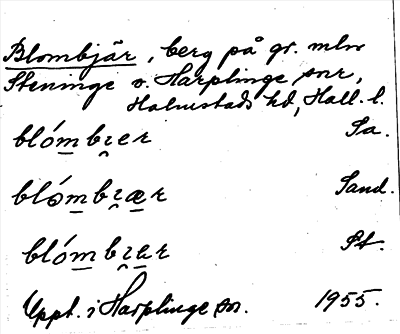 Blombjär, berg på gr. mlm
Steninge o. Harplinge snr,
Halmstads hd, Hall. l.
blómbɪer Sa.
blómbɪær Sand.
blómbɪar St.
Uppt. i Harplinge sn. 1955.